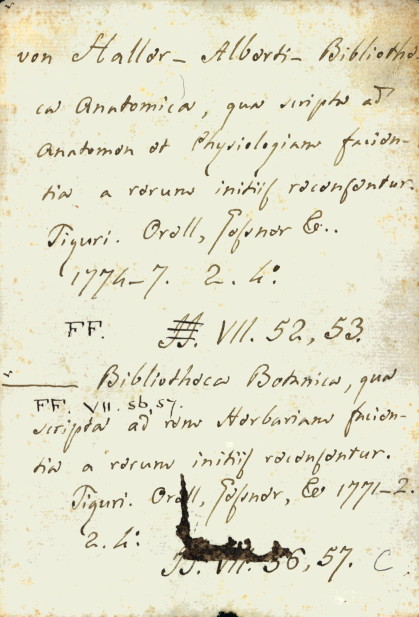 von Haller – Alberti – Bibliothe
ca Anatomica, qua scripta ad
Anatomen et Physiologiam facien-
tia a rerum initiis recensentur.
Tiguri. Orell, Gessner &..
1774–7. 2. 4°
FF. VII. 52, 53.
Bibliotheca Botanica, qua
FF. VII. 56, 57.
scripta ad rem Herbariam facien-
tia a rerum initiis recensentur.
Tiguri. Orell, Gessner, & 1771–2.
2. 4°
VII. 56, 57. C